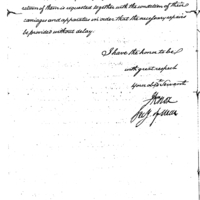 return of them is requested together with the condition of their
carriages and apparatus in order that the necessary repairs
be provided without delay.
I have the honor to be
with great respect
Your obt Servant